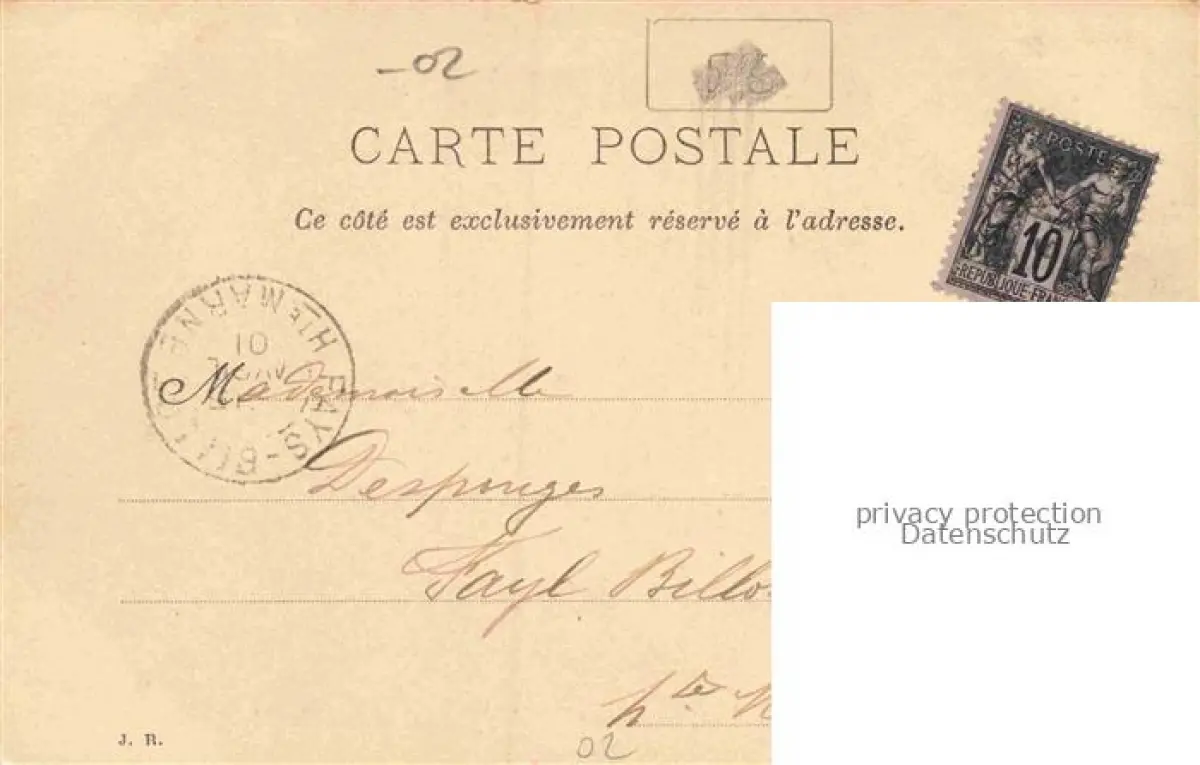 -02
CARTE POSTALE
Ce côté est exclusivement réservé à l'adresse.
POSTE
10
REPUBLIQUE FRAN
HTE MARNE
01
FAYS-BI
Mademoiselle
Desponges
Fayl Billo
hte M
J. R.
02
privacy protection
Datenschutz